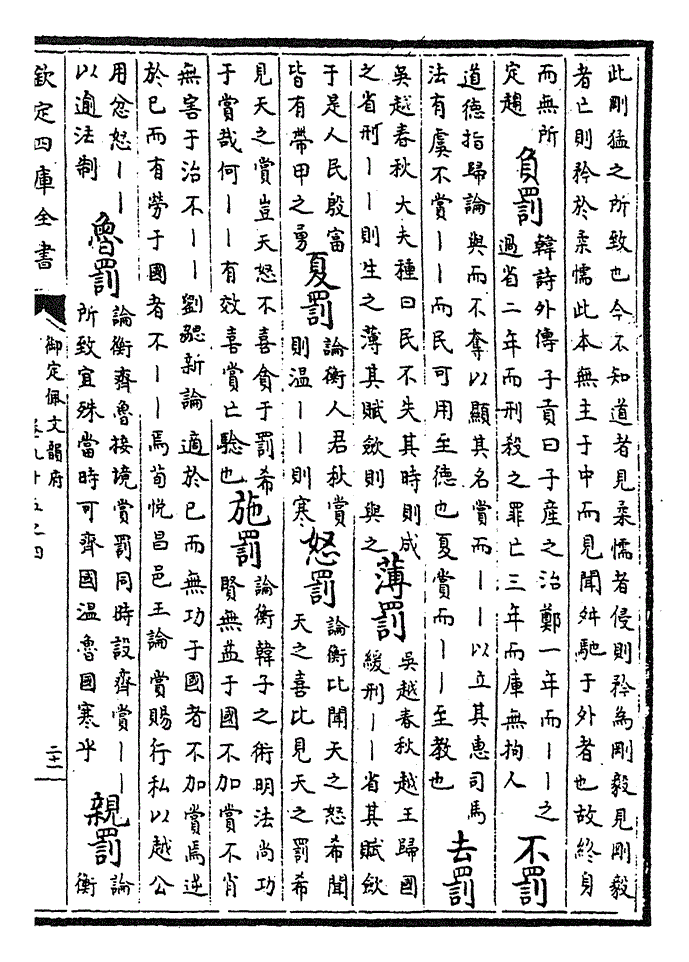 此剛猛之所致也今不知道者見柔懦者侵則矜為剛毅見剛毅
者亡則矜於柔懦此本無主于中而見聞舛馳于外者也故終身
而無所
定趨
負罰
韓詩外傳子貢曰子產之治鄭一年而丨丨之
過省二年而刑殺之罪亡三年而庫無拘人
不罰
道德指歸論與而不奪以顯其名賞而丨丨以立其惠司馬
法有虞不賞丨丨而民可用至德也夏賞而丨丨至教也
去罰
吳越春秋大夫種曰民不失其時則成
之省刑丨丨則生之薄其賦歛則與之
薄罰
吳越春秋越王歸國
緩刑丨丨省其賦歛
于是人民殷富
皆有帶甲之勇
夏罰
論衡人君秋賞
則温丨丨則寒
怒罰
論衡比聞天之怒希聞
天之喜比見天之罰希
見天之賞豈天怒不喜貪于罰希
于賞哉何丨丨有效喜賞亡驗也
施罰
論衡韓子之術明法尚功
賢無益于國不加賞不肖
無害于治不丨丨劉勰新論適於已而無功于國者不加賞焉逆
於已而有勞于國者不丨丨焉荀悅昌邑王論賞賜行私以越公
用忿怒丨丨
以逾法制
魯罰
論衡齊魯接境賞罰同時設齊賞丨丨
所致宜殊當時可齊國温魯國寒乎
親罰
論
衡
欽定四庫全書
御定佩文韻府